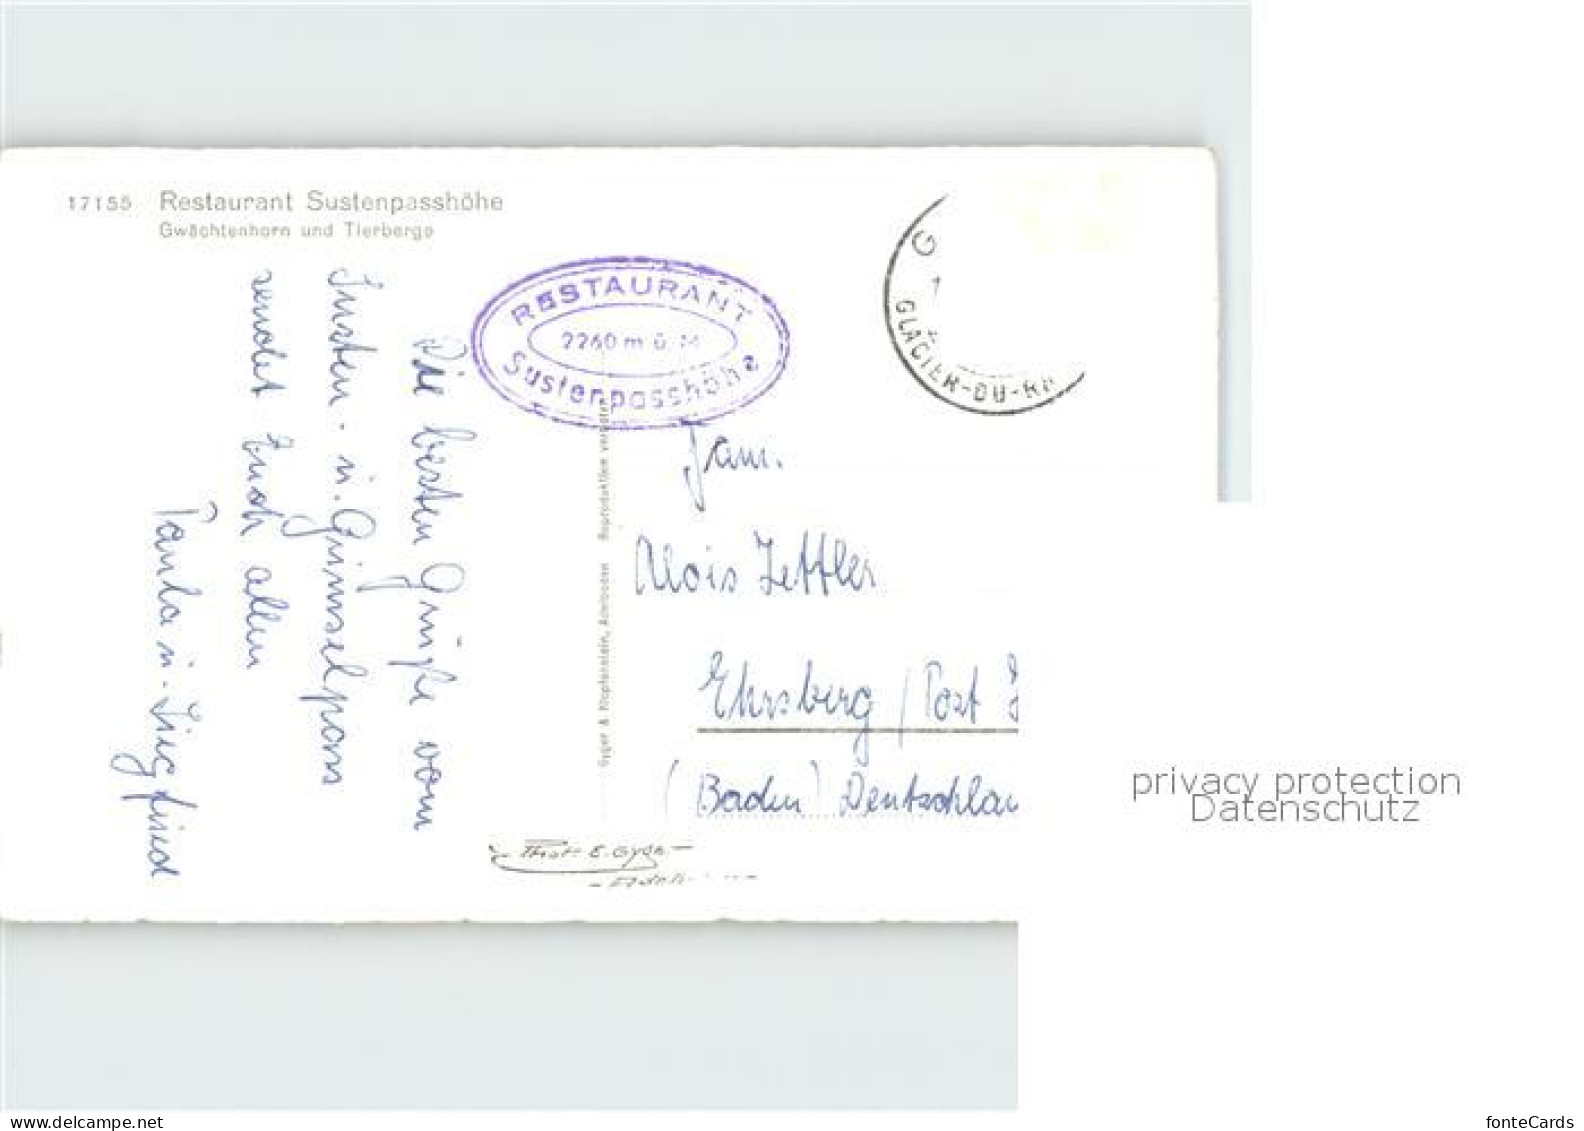 17155 Restaurant Sustenpasshöhe
Gwächtenhorn und Tierberge
Die besten Grüße vom
Susten- u. Grimselpass
sendet Euch allen
Paula u. Siegfried
RESTAURANT
2260 m ü. M
Sustenpasshöhe
G
1
GLACIER-DU-RH
Gyger & Klopfenstein, Adelboden Reproduktion verboten
Fam.
Alois Zettler
Ehrsberg / Post Z
(Baden) Deutschlan
Phot. E. Gyger
privacy protection
Datenschutz
www.delcampe.net
fonteCards